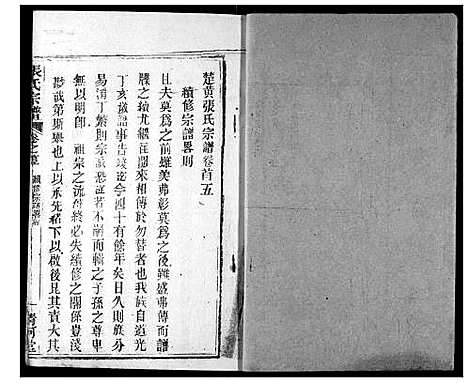 楚黃張氏宗譜卷首五
續修宗譜畧則
且夫莫為之前雖美弗彰莫為之後雖盛弗傳而譜
牒之續尤繼往開來相傳於勿替者也我族自道光
丁亥歲譜事告竣迄今四十有餘年矣日久則族分
易淆丁繁則宗派恐從而紊之子孫之尊卑
無以明即祖宗之流傳終必失續修之關係豈淺
尠哉第斯舉也上以承先緒下以啟後昆其責大其
張氏宗譜
卷之首
清河堂